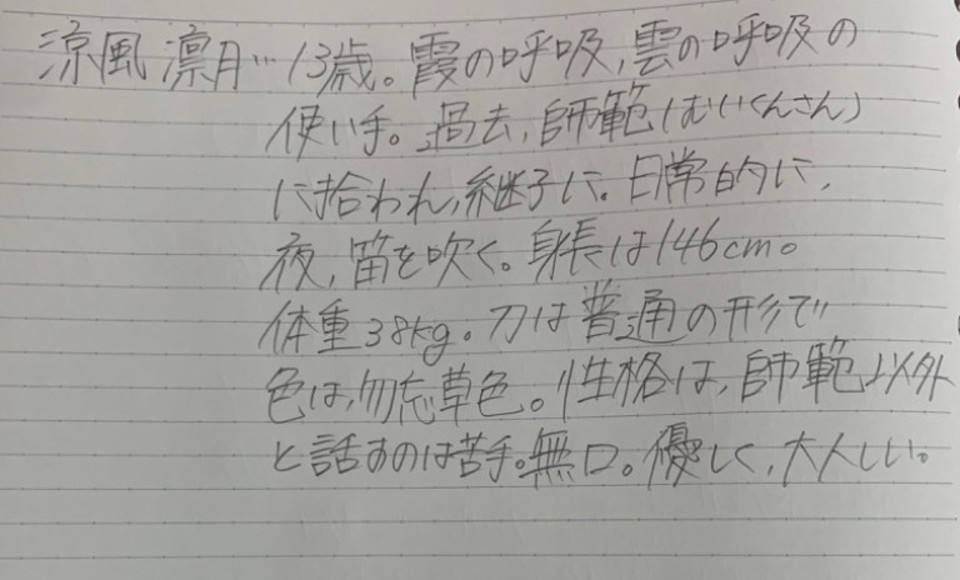 涼風 凛月…13歳。霞の呼吸,雲の呼吸の
使い手。過去,師範(むいくんさん)
に拾われ,継子に。日常的に,
夜,笛を吹く。身長は146cm。
体重38kg。刀は普通の形で
色は,勿忘草色。性格は,師範以外
と話すのは苦手。無口。優しく,大人しい。